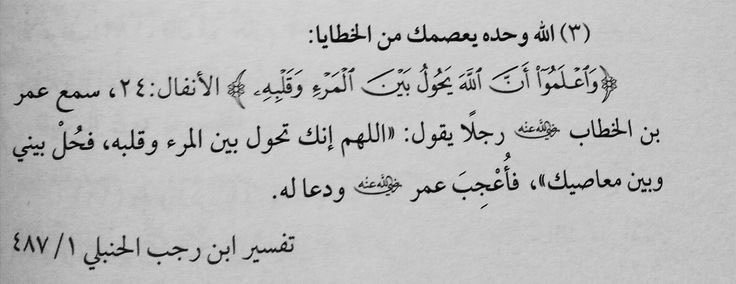 (٣) الله وحده يعصمك من الخطايا:
﴿وَٱعۡلَمُوٓاْ أَنَّ ٱللَّهَ يَحُولُ بَيۡنَ ٱلۡمَرۡءِ وَقَلۡبِهِۦ﴾ الأنفال:٢٤، سمع عمر
بن الخطاب رضي الله عنه رجلًا يقول: «اللهم إنك تحول بين المرء وقلبه، فحُلْ بيني
وبين معاصيك»، فأُعْجِبَ عمر رضي الله عنه ودعا له.
تفسير ابن رجب الحنبلي ١/ ٤٨٧